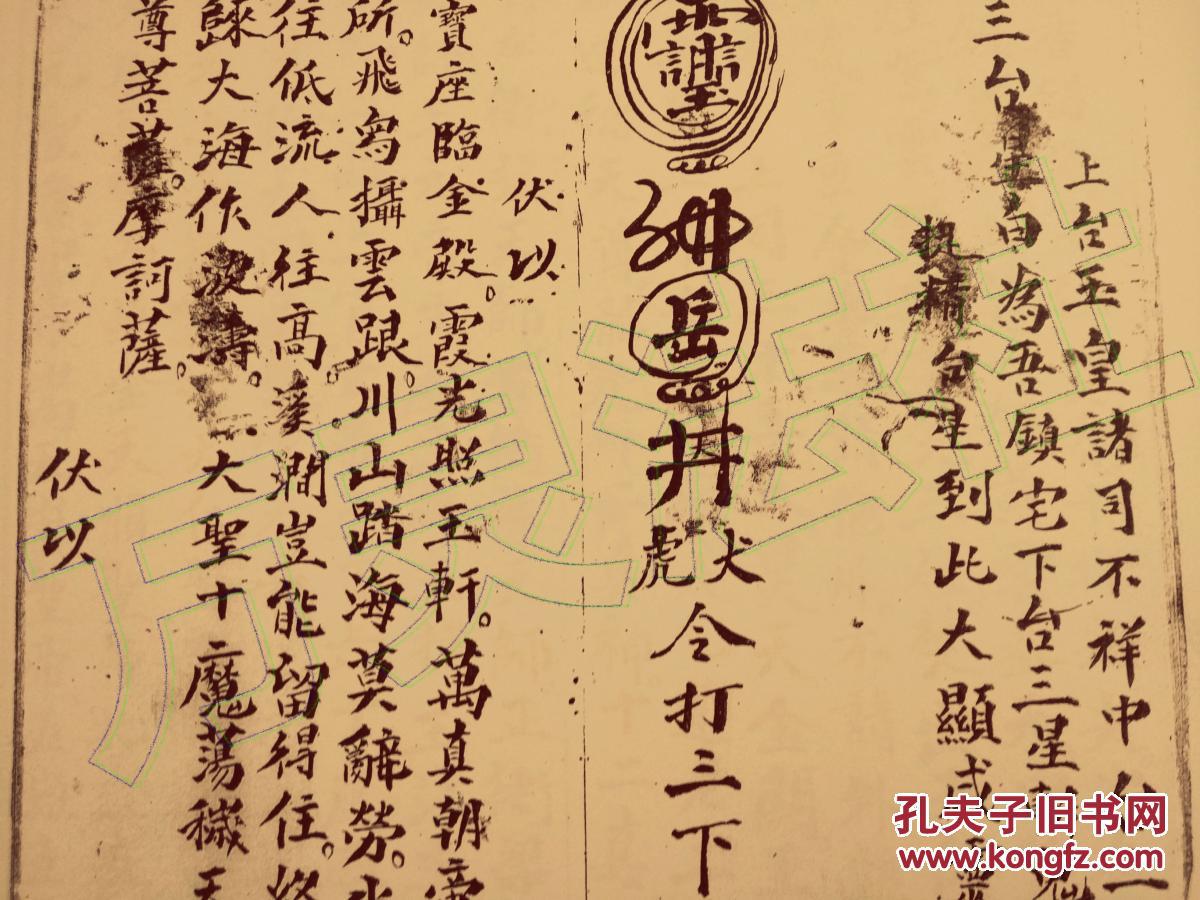 三台
上台玉皇諸司不祥中台一
白為吾鎮宅下台三星
精台星到此大顯威靈
岳
井
犬虎
令打三下
伏以
寶座臨金殿。霞光照玉軒。萬真朝帝
所。飛舄攝雲跟。川山踏海莫辭勞。水
往低流人往高。溪澗豈能留得住。終
歸大海作波濤。大聖十魔蕩穢天
尊菩薩。摩訶薩。
伏以
孔夫子旧书网
www.kongfz.com